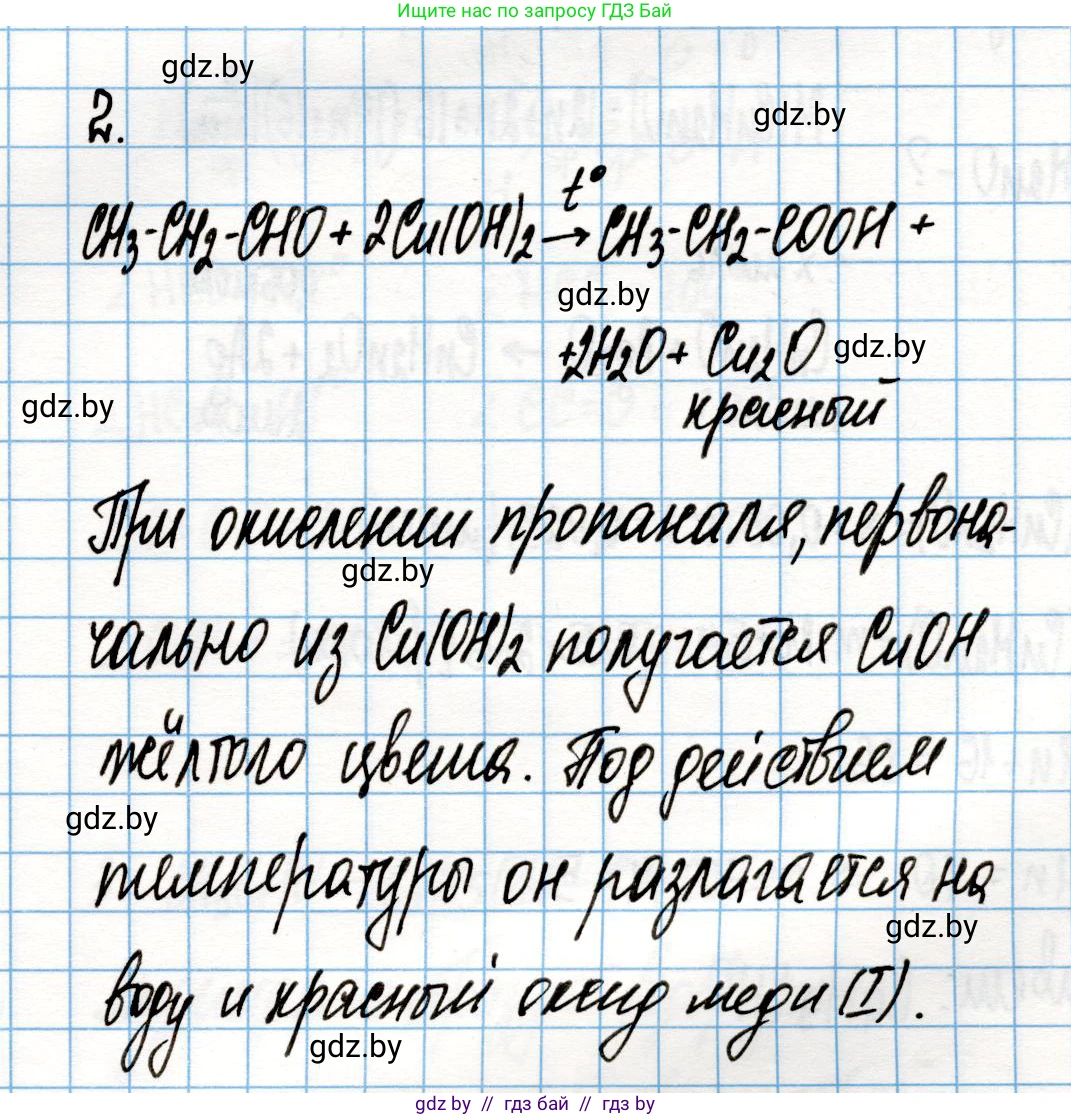 Ищите нас по запросу ГДЗ Бай
gdz.by
2.
gdz.by
t°
CH₃-CH₂-CHO + 2Cu(OH)₂ → CH₃-CH₂-COOH +
gdz.by
+2H₂O + Cu₂O
gdz.by
gdz.by
красный
При окислении пропаналя, первона-
gdz.by
чально из Cu(OH)₂ получается CuOH
жёлтого цвета. Под действием
gdz.by
температуры он разлагается на
gdz.by
воду и красный оксид меди (I).
gdz.by
gdz by // гдз бай // гдз by